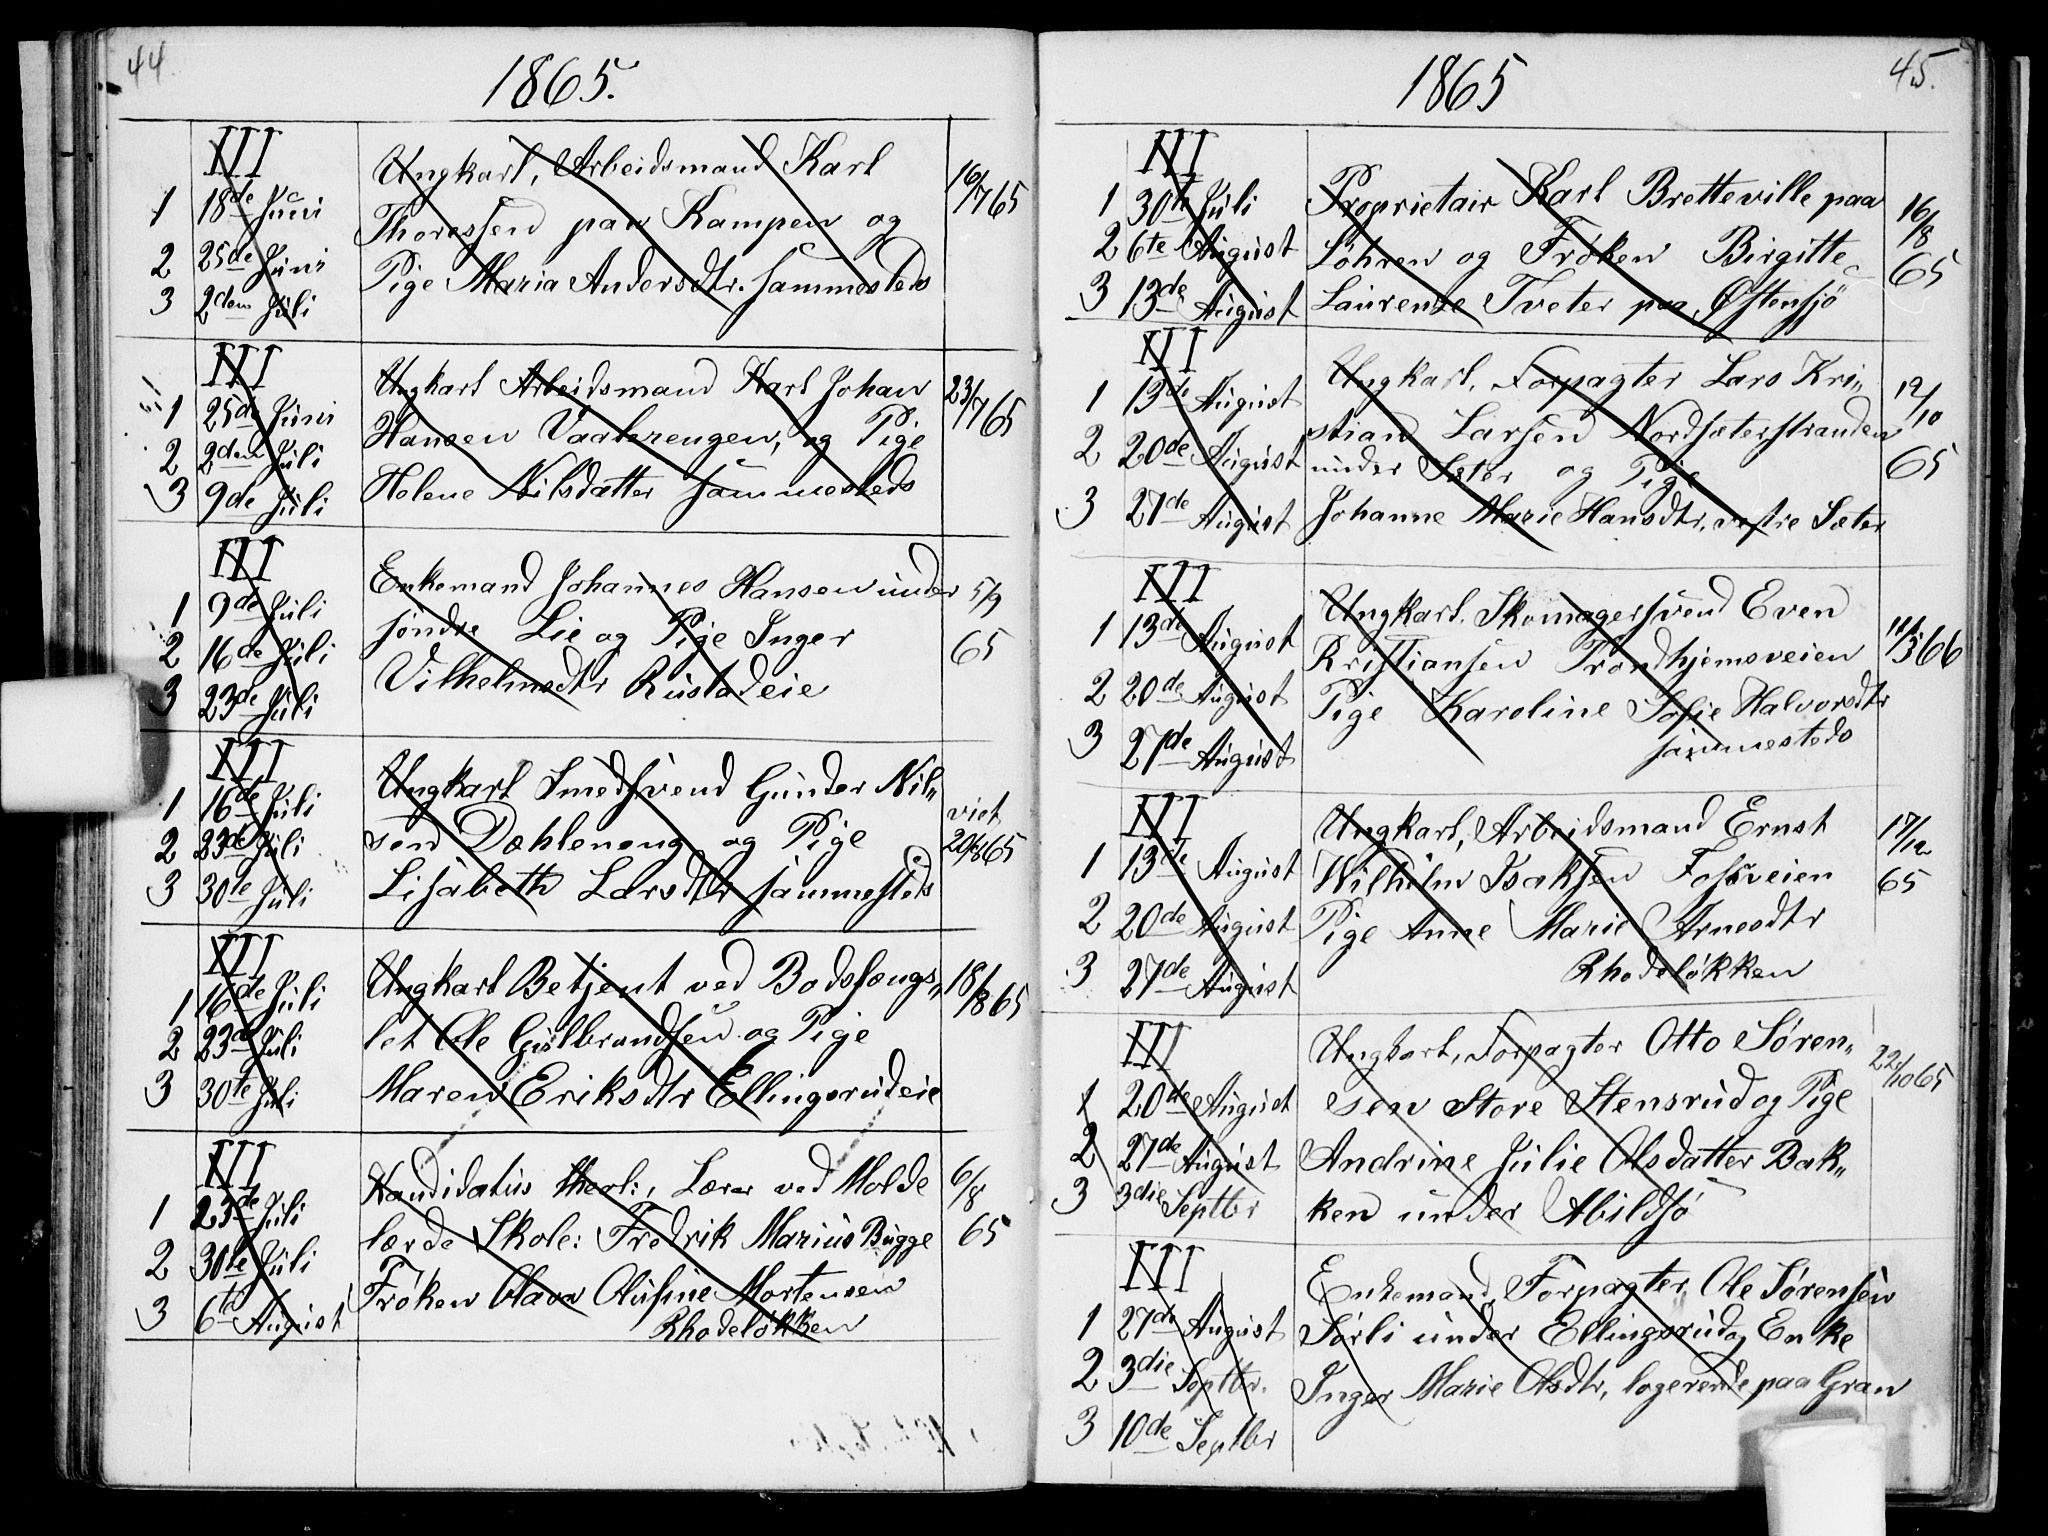 44
1865.
III
1 18de Juni
2 25de Juni
3 2den Juli
Ungkarl, Arbeidsmand Karl
Thoressen paa Kampen og
Pige Maria Andersdtr. sammesteds
16/7 65
III
1 25de Juni
2 2den Juli
3 9de Juli
Ungkarl Arbeidsmand Karl Johan
Hansen Vaalerengen, og Pige
Helene Nilsdatter sammesteds
23/7 65
III
1 9de Juli
2 16de Juli
3 23de Juli
Enkemand Johannes Hansen under
søndre Lie og Pige Inger
Vilhelmsdtr Rustadeie
5/9
65
III
1 16de Juli
2 23de Juli
3 30te Juli
Ungkarl Smedsvend Gunder Nil„
sen Dæhleneng og Pige
Lisabeth Larsdtr sammesteds
viet
20/8 65
III
1 16de Juli
2 23de Juli
3 30te Juli
Ungkarl Betjent ved Bodsfængs„
let Ole Gulbrandsen og Pige
Maren Eriksdtr Ellingsrudeie
18/8 65
III
1 23de Juli
2 30te Juli
3 6te August
Kandidatus theol:, Lærer ved Molde
lærde Skole: Fredrik Marius Bugge
Frøken Olava Olufine Mortensen
Rhodeløkken
6/8
65
45.
1865
III
1 30te Juli
2 6te August
3 13de August
Proprietair Karl Bretteville paa
Løhren og Frøken Birgitte
Laurentze Tveter paa Østensjø
16/8
65
III
1 13de August
2 20de August
3 27de August
Ungkarl, Forpagter Lars Kri„
stian Larsen Nordsæterstranden
under Sæter og Pige
Johanne Marie Hansdtr, vestre Sæter
12/10
65
III
1 13de August
2 20de August
3 27de August
Ungkarl. Skomagersvend Even
Kristiansen Trondhjemsveien
Pige Karoline Sofie Halvorsdtr
sammesteds
11/3 66
III
1 13de August
2 20de August
3 27de August
Ungkarl, Arbeidsmand Ernst
Wilhelm Isaksen Fossveien
Pige Anne Marie Arnesdtr
Rhodeløkken
17/12
65
III
1 20de August
2 27de August
3 3die Septbr
Ungkarl, Forpagter Otto Søren„
sen Store Stensrud og Pige
Andrine Julie Olsdatter Bak„
ken under Abildsø
22/10 65
III
1 27de August
2 3die Septbr.
3 10de Septbr
Enkemand, Forpagter, Ole Sørensen
Sørli under Ellingsrud og Enke
Inger Marie Olsdtr, logerende paa Gran